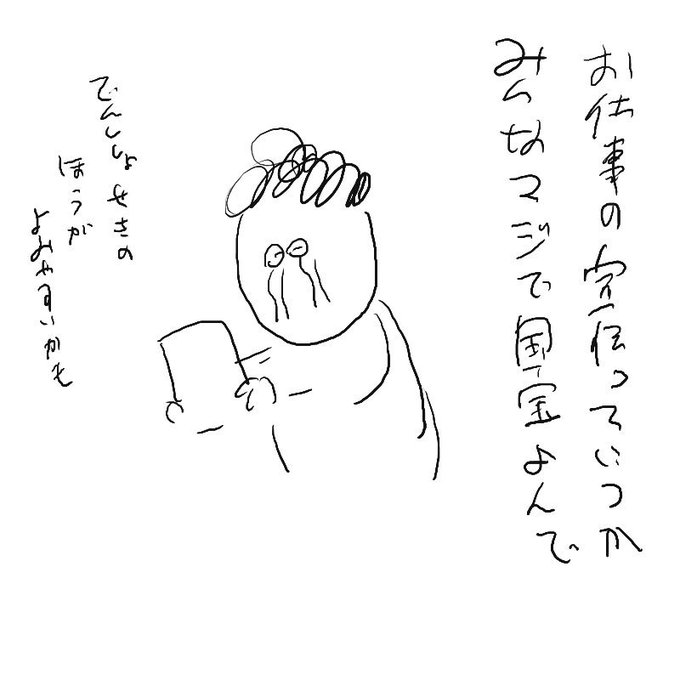 お仕事の宣伝っていうか
みんなマジで国宝よんで
でんししょせきの
ほうが
よみやすいかも